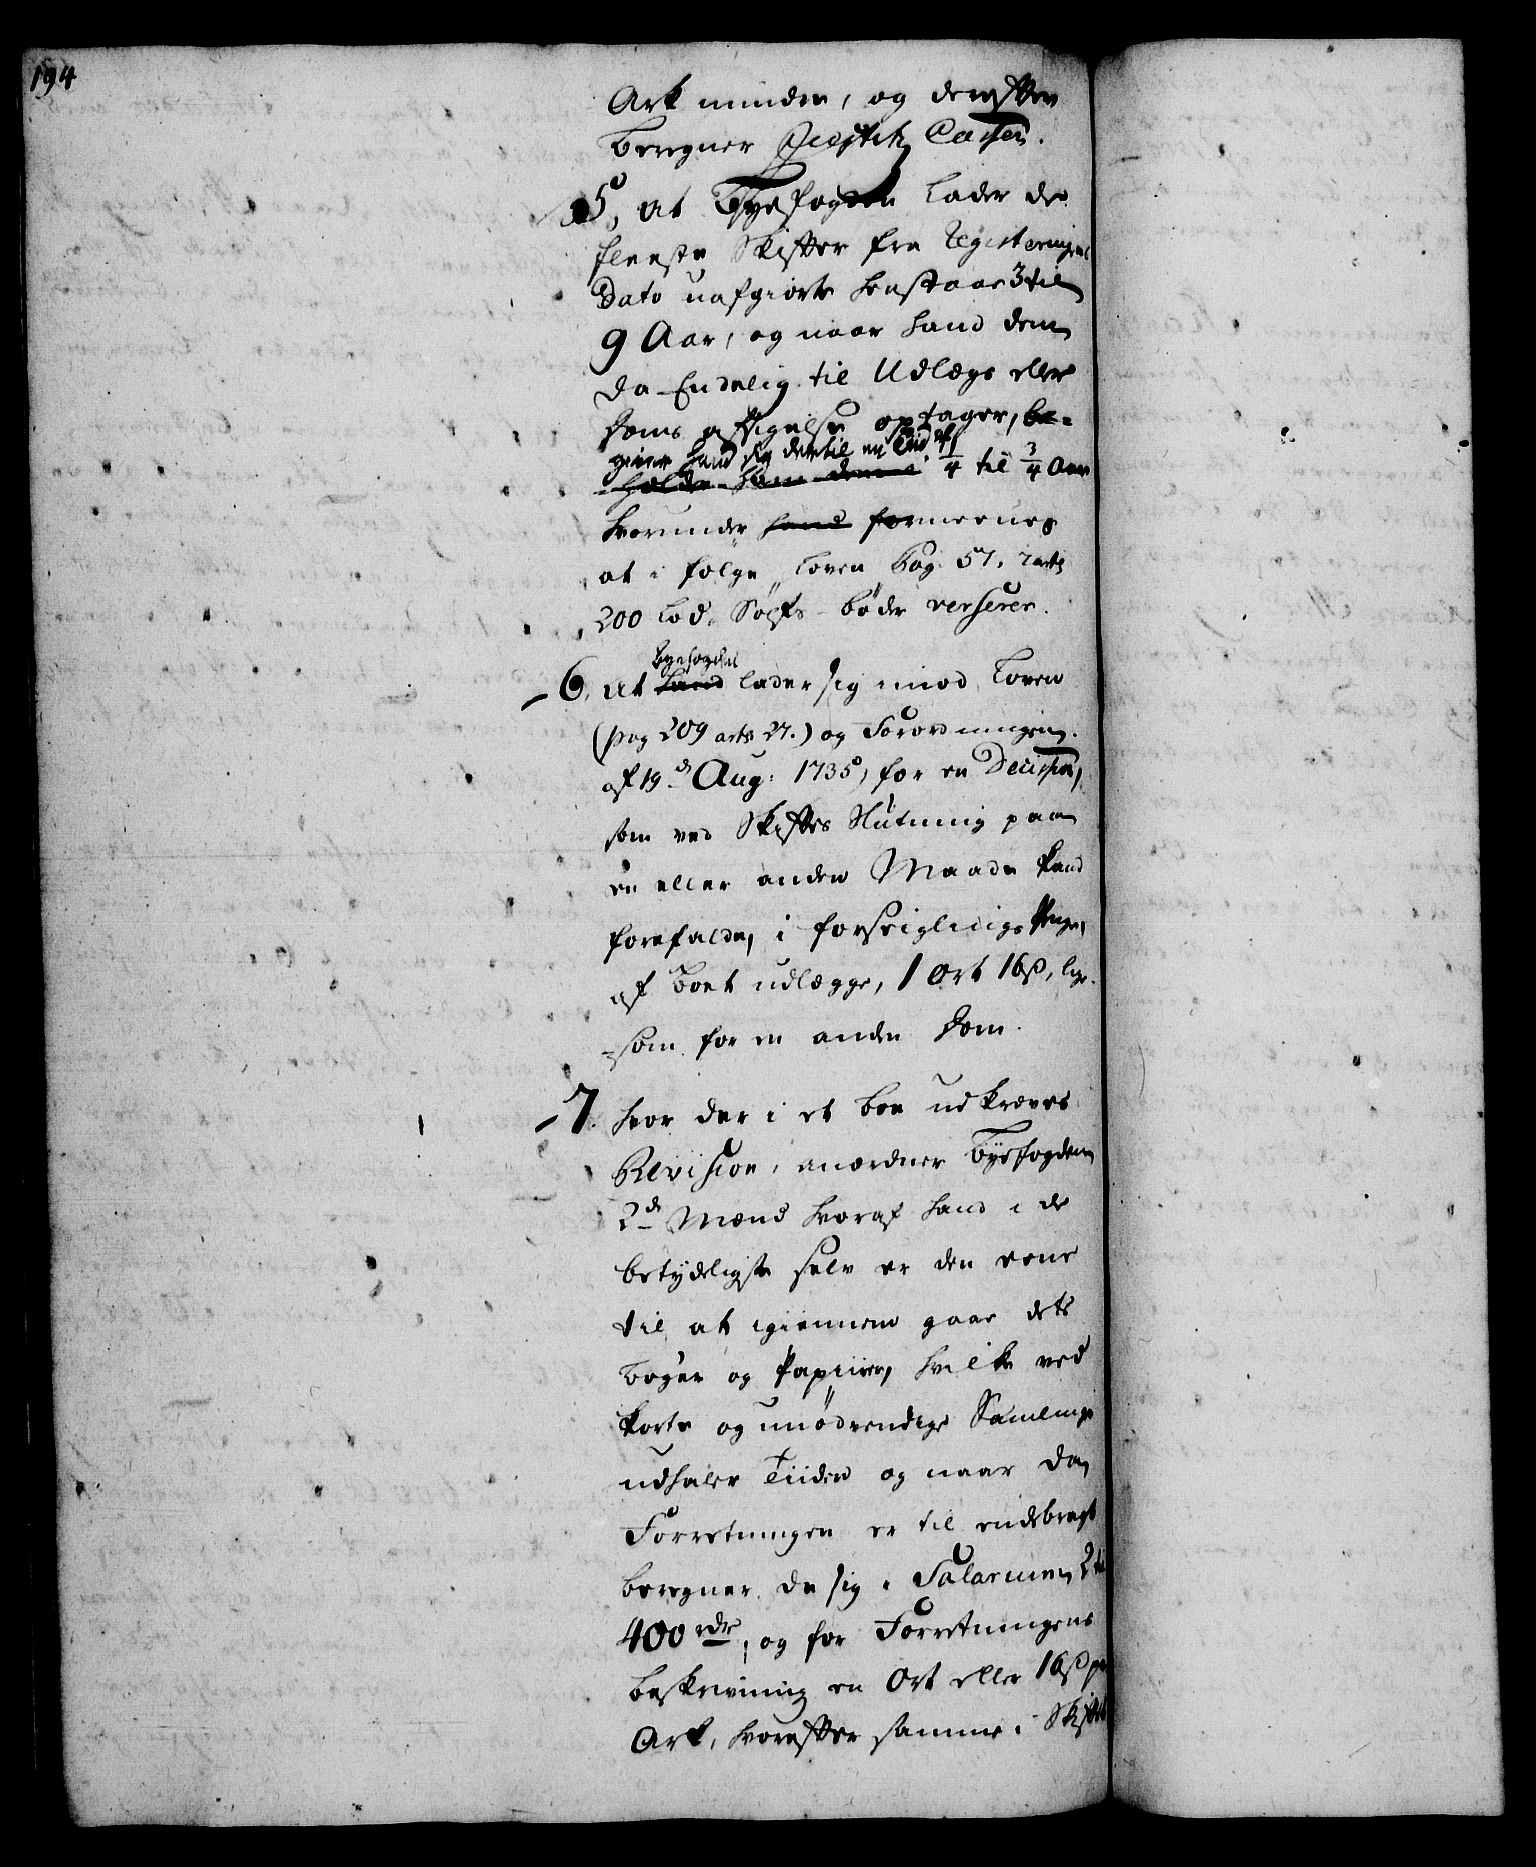 194
Ark mindre, og derefter
beregner Justitz Cassen.
5, at Byefogden lader de
fleeste Skifter fra Registeringens
Dato uafgiorte henstaae 3 til
9 Aar, og naar hand dem
da Endelig til Udlægs eller
Doms afsigelse optager, be-
giver hand sig dertil en Tid af
holder ham denne 1/4 til 3/4 Aar
hvorunder hand formeenes
at i følge Loven Pag: 57. 7 art:
200 Lod. Sølfs bøder verserer.
Byefogden
6, at hand lader sig imod Loven
(pag 209 art: 27.) og Forordningen
af 19.de Aug: 1735, for en Decision,
som ved Skiftes Slutning paa
en eller anden Maade kand
forefalde, i forseiglings Penge,
af Boet udlægge, 1 Ort 16 ß, lige-
-som for en anden Dom.
7. hvor der i et boe udkræves
Revision, anordner Byefogden
2de Mænd hvoraf hand i de
betydeligste selv er den eene
til at igiennem gaae dets
bøger og Papiirer, hvilke ved
korte og unødvendige Samlinger
udhaler Tiiden og naar da
Forretningen er til endebragt
beregner de sig i Salarium 2 til
400 rdr, og for Forretningens
beskrivning en Ort eller 16 ß pr
Ark, hvorefter samme i Skiftet